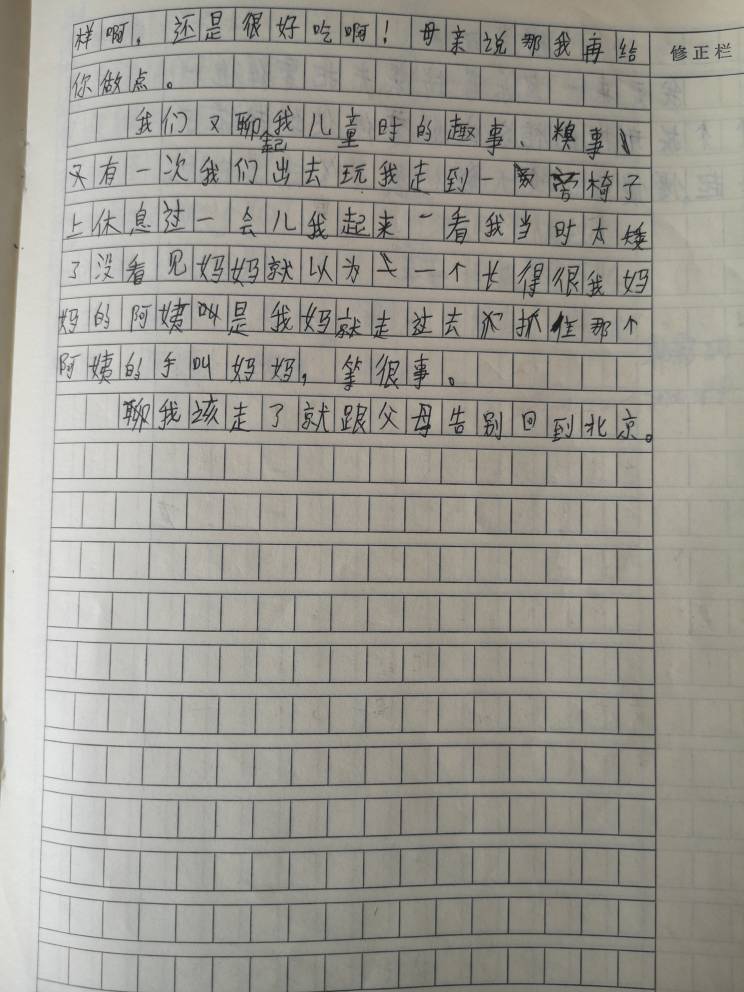 样啊，还是很好吃啊！母亲说那我再给
修正栏
你做点。
我们又聊起我儿童时的趣事、糗事
又有一次我们出去玩我走到一椅子
上休息过一会儿我起来一看我当时太矮
了没看见妈妈就以为一个长得很我妈
妈的阿姨叫是我妈就走过去抓住那个
阿姨的手叫妈妈，等很事。
聊我该走了就跟父母告别回到北京。